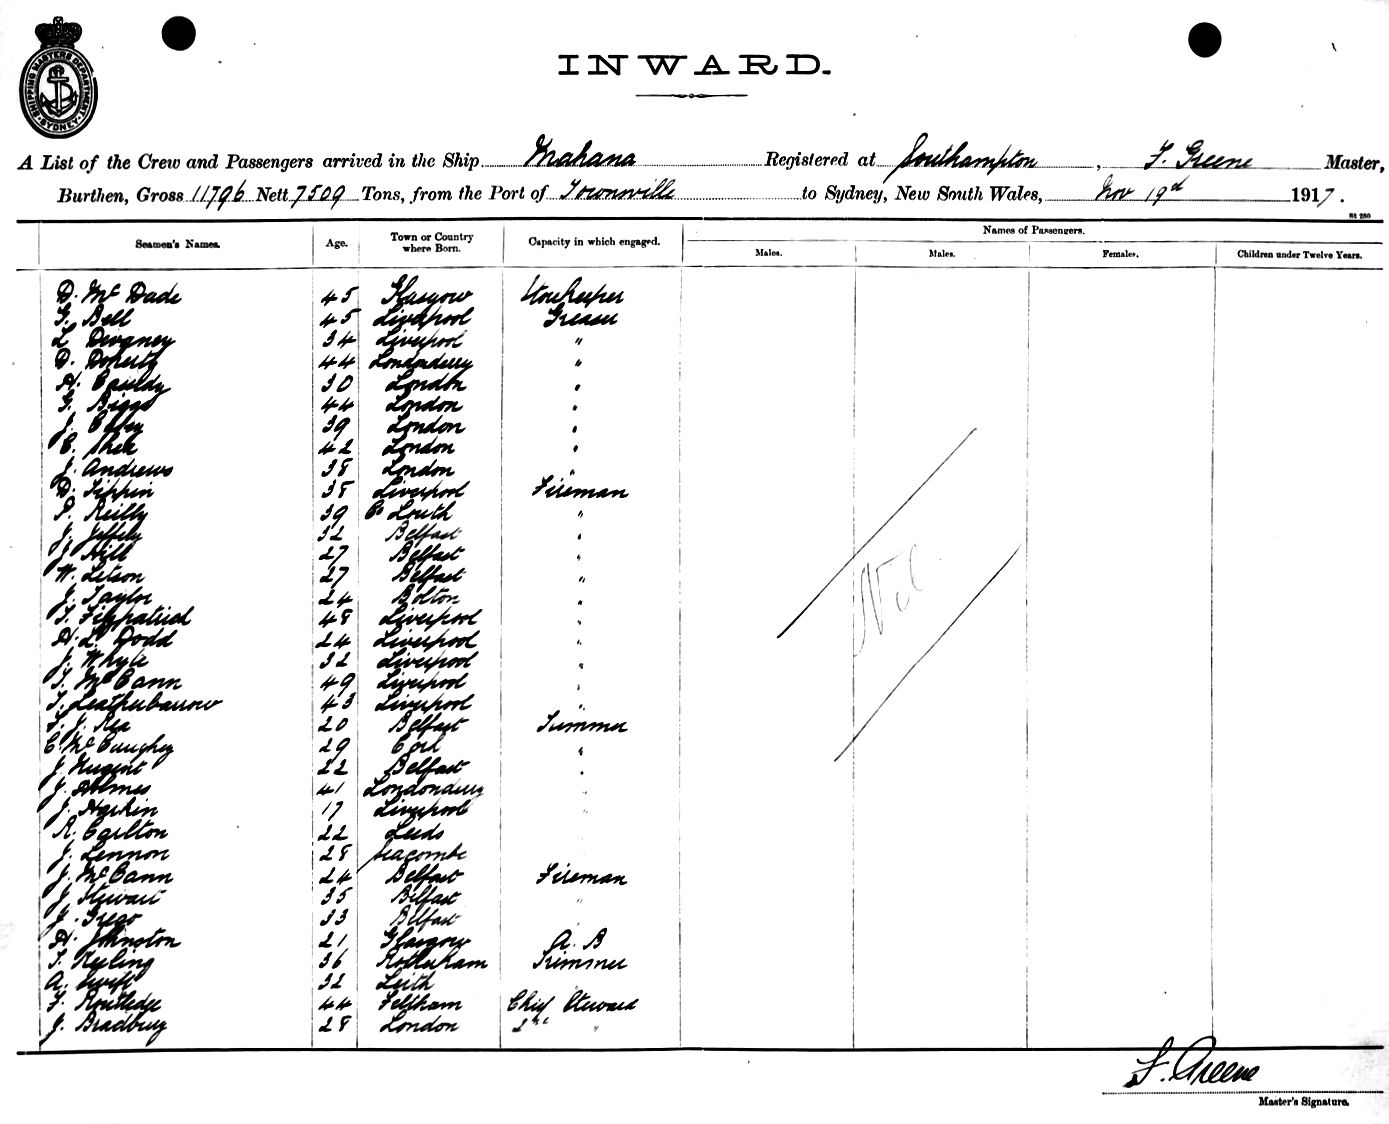 SHIPPING MASTERS DEPARTMENT SYDNEY
INWARD.
A List of the Crew and Passengers arrived in the Ship Mahana Registered at Southampton, F. Greene Master,
Burthen, Gross 11796 Nett 7509 Tons, from the Port of Townville to Sydney, New South Wales, Nov 19d 1917.
St 250
Seamen's Names. Age. Town or Country where Born. Capacity in which engaged. Names of Passengers.
Males. Males. Females. Children under Twelve Years.
D. McDade 45 Glasgow Storekeeper
G. Bell 45 Liverpool Greaser
L. Devaney 34 Liverpool "
D. Doherty 44 Londonderry "
30 London "
G. Biggs 44 London "
J. 39 London "
E. 42 London "
J. Andrews 38 London "
D. Tippin 38 Liverpool Fireman
P. Reilly 39 Co Louth "
J. 32 Belfast "
J. Hill 27 Belfast "
W. Letson 27 Belfast "
J. Taylor 24 Bolton "
T. Fitzpatrick 48 Liverpool "
H. L. Dodd 24 Liverpool "
J. Whyte 32 Liverpool "
T. McCann 49 Liverpool "
T. Leatherbarrow 43 Liverpool "
F. J. Rea 20 Belfast Trimmer
C. McCaughey 29 Cork "
J. Nugent 22 Belfast "
J. Holmes 41 Londonderry "
J. Harkin 17 Liverpool "
R. Carlton 22 Leeds
J. Lennon 28 Seacombe
J. McCann 24 Belfast Fireman
J. Stewart 35 Belfast "
J. Grego 33 Belfast "
H. Johnston 21 Glasgow A. B
T. Keeling 36 Rotherham Trimmer
A. Swift 32 Leith
F. Routledge 44 Feltham Chief Steward
J. Bradbury 28 London 2nd "
Nil
F. Greene
Master's Signature.